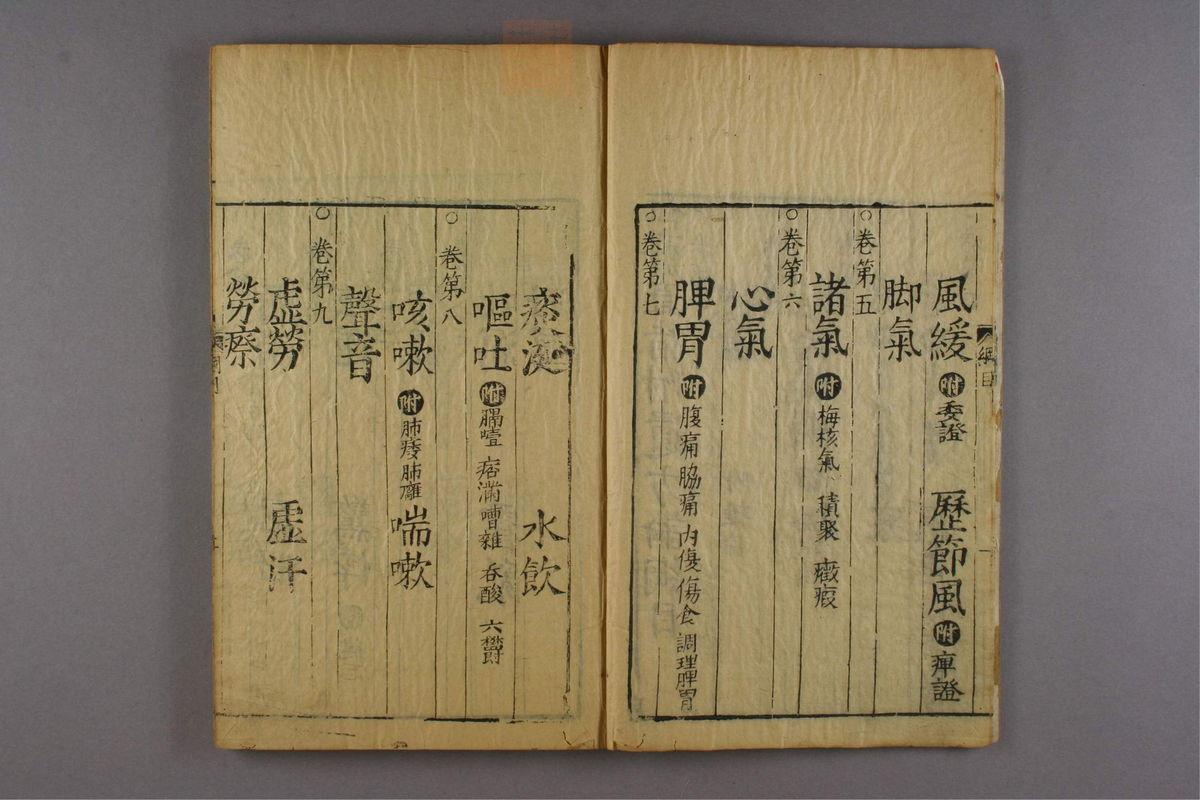 風緩 附 委證 歷節風 附 痺證
脚氣
○卷第五
諸氣 附 梅核氣、積聚 癥瘕
○卷第六
心氣
脾胃 附 腹痛 脇痛 内傷 傷食 調理脾胃
○卷第七
痰涎 水飲
嘔吐 附 膈噎 痞滿 嘈雜 吞酸 六欝
○卷第八
咳嗽 附 肺痿 肺癰 喘嗽
聲音
○卷第九
虛勞 虛汗
勞瘵
綱目